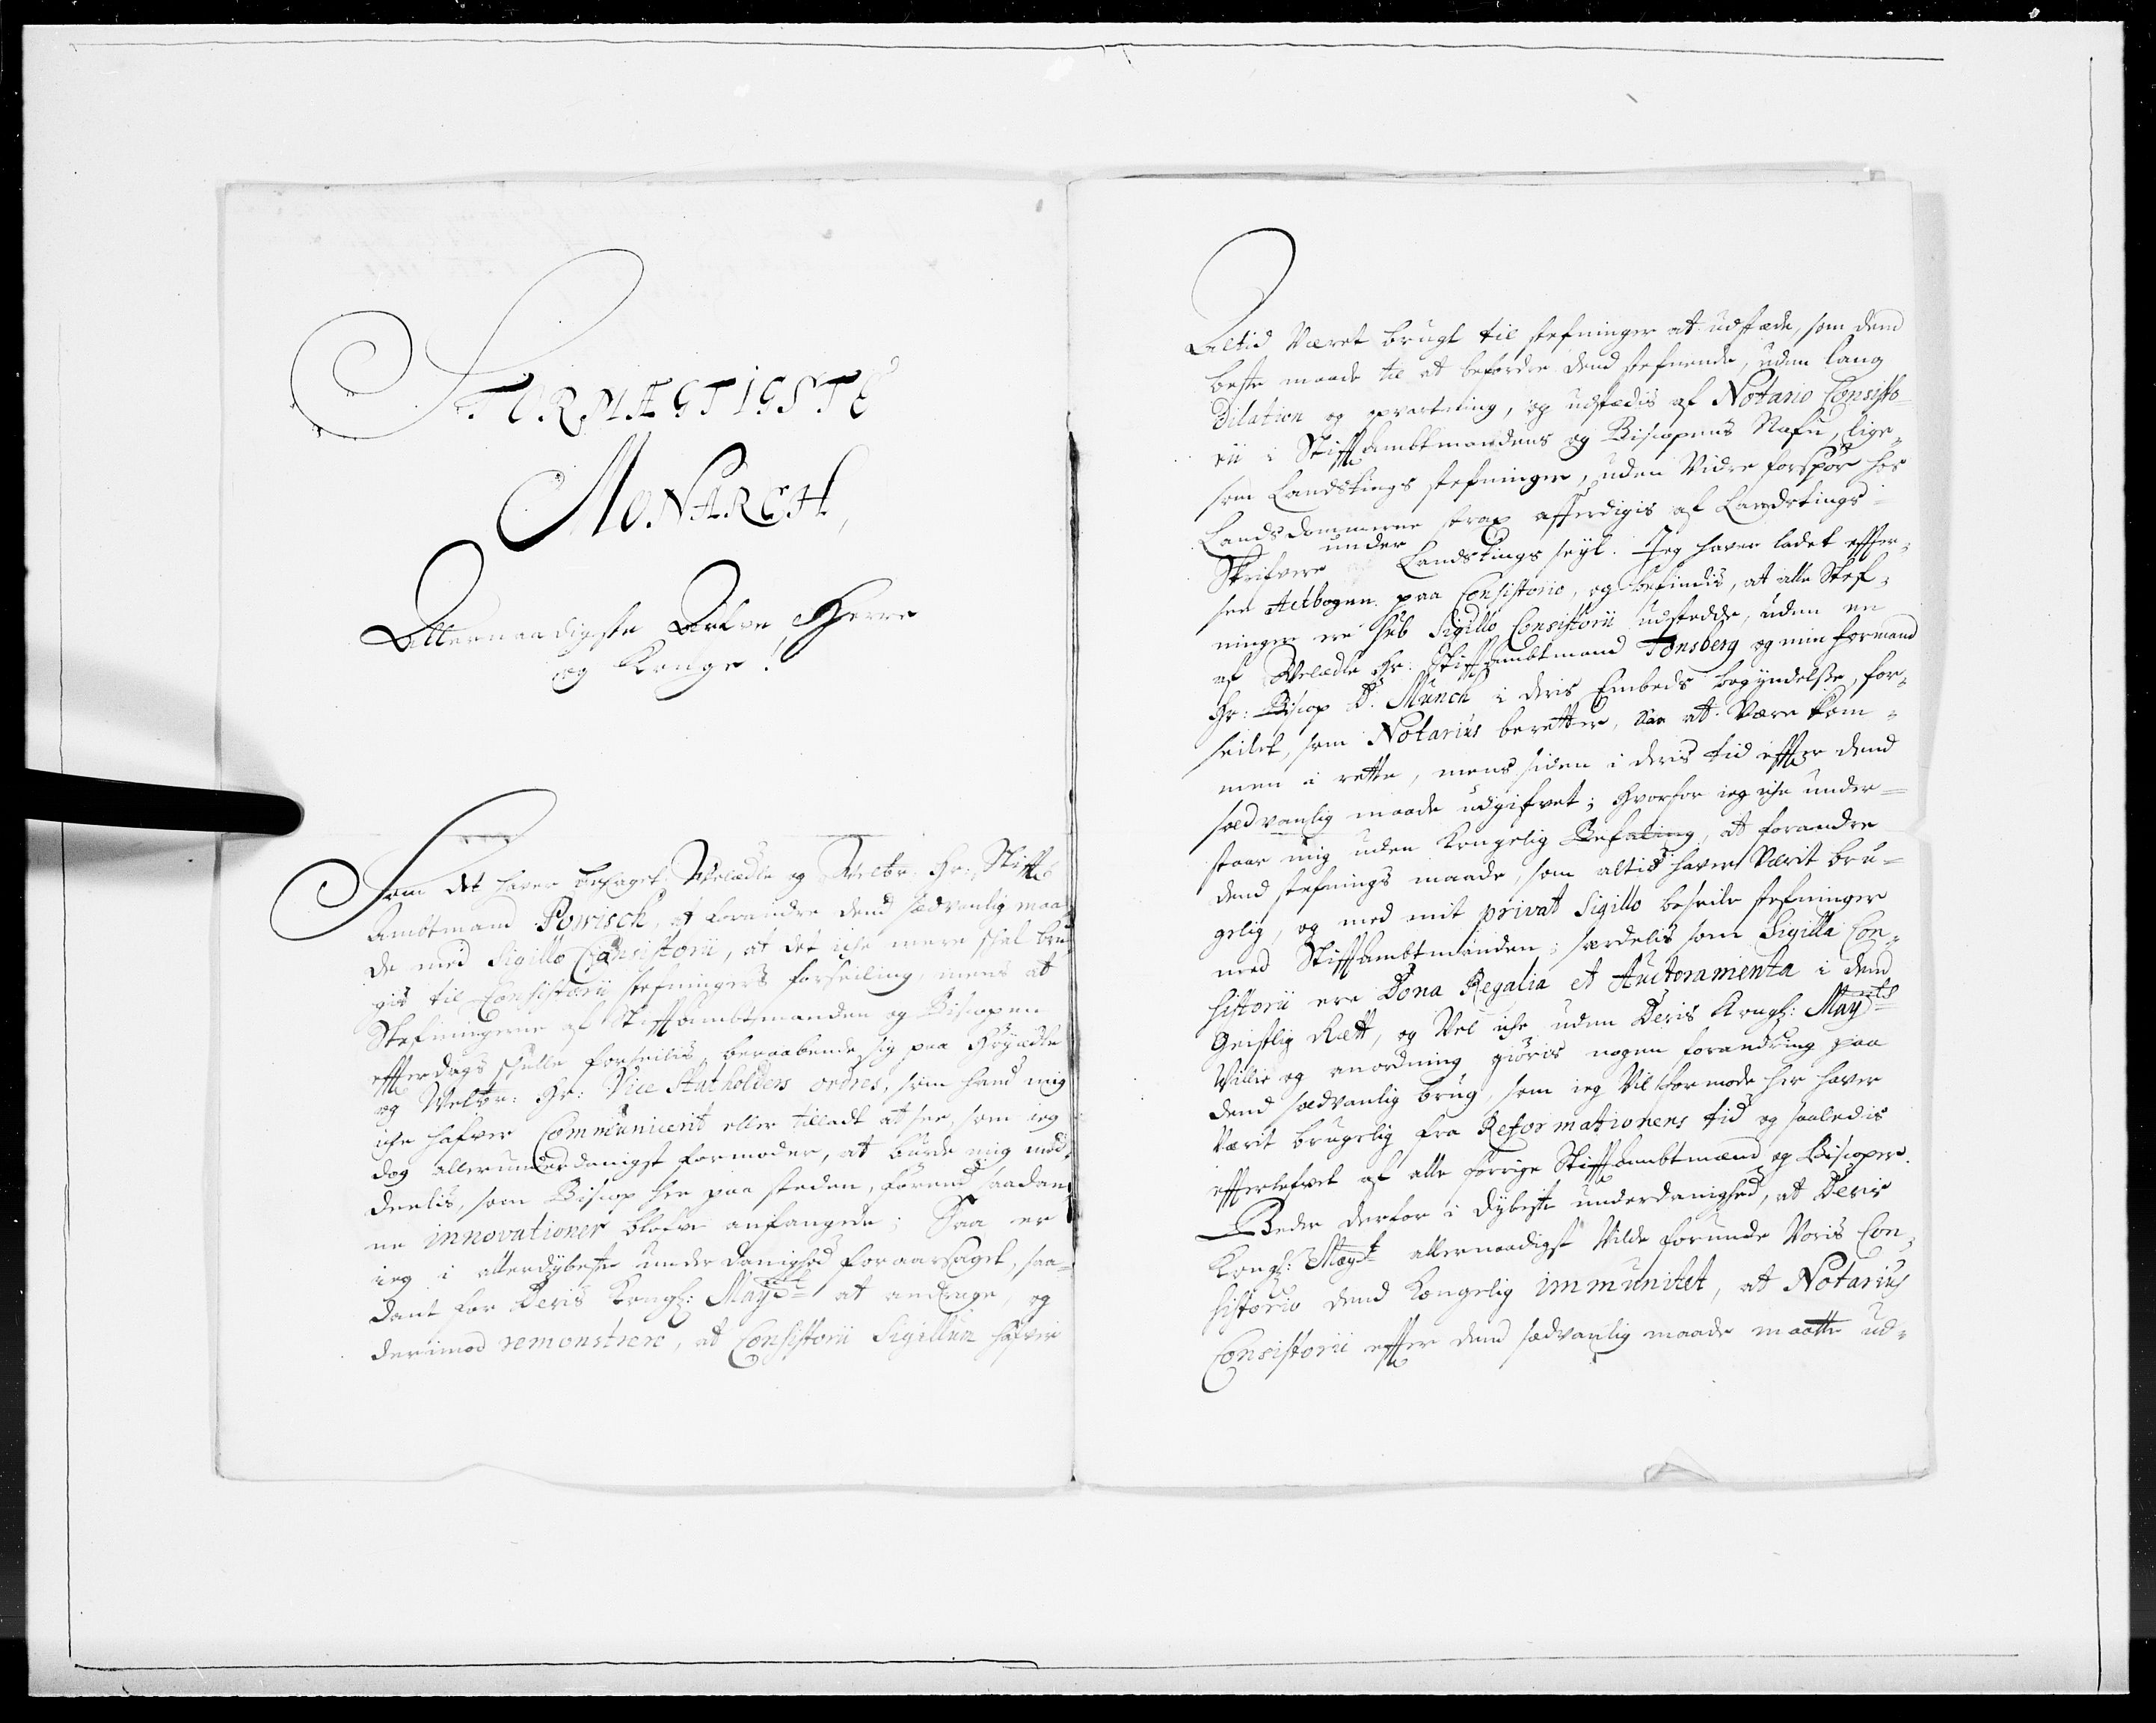 STORMÆGTIGSTE
MONARCH,
Allernaadigste Arfve Herre
og Konge!
Som det haver behaget Velædle og Velbr. Hr: Stifft
Ambtmand Powisch, at forandre dend sædvanlig maa,
de med Sigillo Consistorii, at det iche mere skal bru
gis til Consistorii stefningers forseiling, mens at
Stefningerne af Stifftambtmanden og Bispen
effterdags skulle forseilis, beraabende sig paa Høyædle
og Welbr: Hr: Vice Statholders ordres, som hand mig
iche hafver Communicerit eller tilladt at see, som ieg
dog allerunderdanigst formoder, at burde mig med,
deelis, som Biscop her paa steden, førend saadan
ne innovationer blefve anfangede; Saa er
ieg i allerdybeste underdanighed foraarsaget, saa=
dant for Deris Kongl: Mayst: at andrage, og
derimod remonstrere, at Consistorii Sigillum hafver
Altid Været brugt til stefninger at udstæde, som dend
beste maade til at befordre dend stefnende, uden lang
Dilation og opvartning, og udstædis af Notario Consisto
rii i Stifftambtmandens og Biscopens Nafn, lige,
som Landstings stefninger, uden Vidre forspør hos
Landsdommerne strax afferdigis af Landstings=
Skrifvere under Landstings seyl. Jeg haver ladet effter,
see Actbogen paa Consistorio, og befindis, at alle Stef,
ninger ere sub Sigillo Consistorii udstedde, uden en
af Velædle Hr: Stifftambtmand Tonsberg og min formand
Hr: Biscop D. Munch i deris Embeds begyndelsse, for,
seilet, som Notarius beretter, at Være kom=
men i rette, mens siden i deris tid effter dend
sædvanlig maade udgifvet; Hvorfor ieg iche under=
staar mig uden Kongelig Befaling, at forandre
dend stefnings maade, som altid haver Værit bru=
gelig, og med mit privat Sigillo beseile stefninger
med Stifftambtmanden; særdelis som Sigilla Con=
sistorii ere Dona Regalia et Auctoramenta i dend
Geistlig Rætt, og Vel iche uden Deris Kongl: Mayts
Villie og anordning giøris nogen forandring paa
dend sædvanlig brug, som ieg Vil formode her haver
Værit brugelig fra Reformationens tid og saaledis
effterlefvet af alle forrige Stifftambtmænd og Biscoper.
Beder derfor i dybeste underdanighed, at Deris
Kongl: Mayst: allernaadigst Vilde forunde Voris Con,
sistorio dend Kongelig immunitet, at Notarius
Consistorii effter dend sædvanlig maade maatte ud=